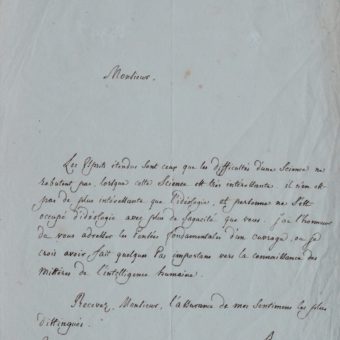 Monsieur.
Les Esprits étendus sont ceux que les difficultés d'une Science ne
rebutent pas, lorsque cette Science est très intéressante. il n'en est
pas de plus intéressante que l'idéologie, et personne ne s'est
occupé d'idéologie avec plus de sagacité que vous. j'ai l'honneur
de vous adresser les Pensées fondamentales d'un ouvrage, où je
crois avoir fait quelques Pas importans vers la connaissance des
de l'intelligence humaine.
Recevez, Monsieur, l'assurance de mes Sentimens les plus
distingués.